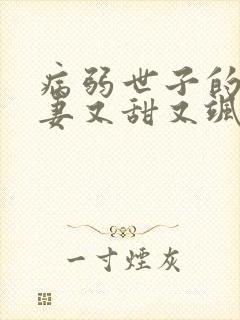 病弱世子的
妻又甜又飒
一寸煙灰